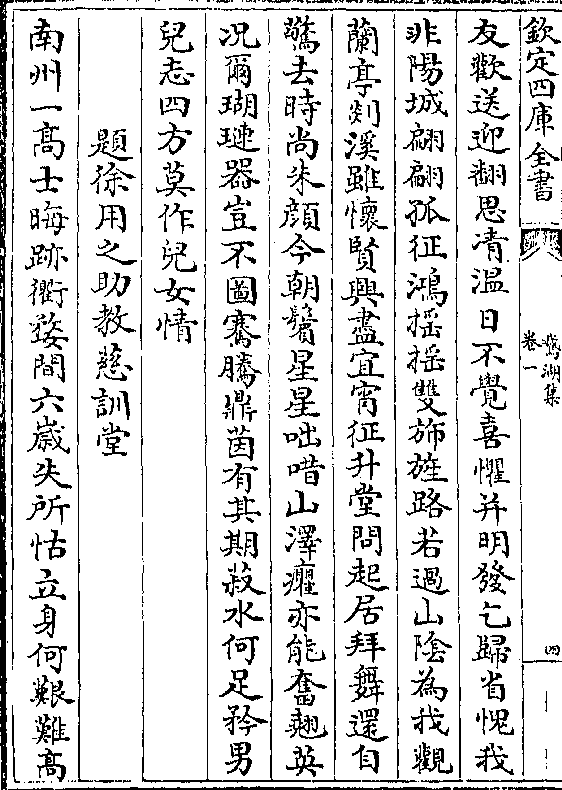 欽定四庫全書
鵞湖集
卷一
四
友歡送迎翻思凊溫日不覺喜懼并明發乞歸省愧我
非陽城翩翩孤征鴻揺揺雙斾旌路若過山陰為我觀
蘭亭剡溪雖懷賢興盡宜宵征升堂問起居拜舞還自
驚去時尚朱顔今朝鬢星星咄唶山澤癯亦能奮翹英
況爾瑚璉器豈不圖騫騰鼎茵有其期菽水何足矜男
兒志四方莫作兒女情
題徐用之助教慈訓堂
南州一高士晦跡衢婺間六歲失所怙立身何艱難高